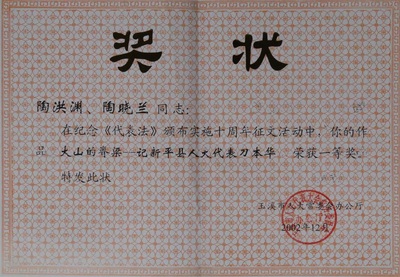 奖状
陶洪渊、陶晓兰同志:
在纪念《代表法》颁布实施十周年征文活动中,你的作
品 大山的脊梁—记新平县人大代表刀本华 荣获一等奖。
特发此状
玉溪市人大常委会办公厅
2002年12月